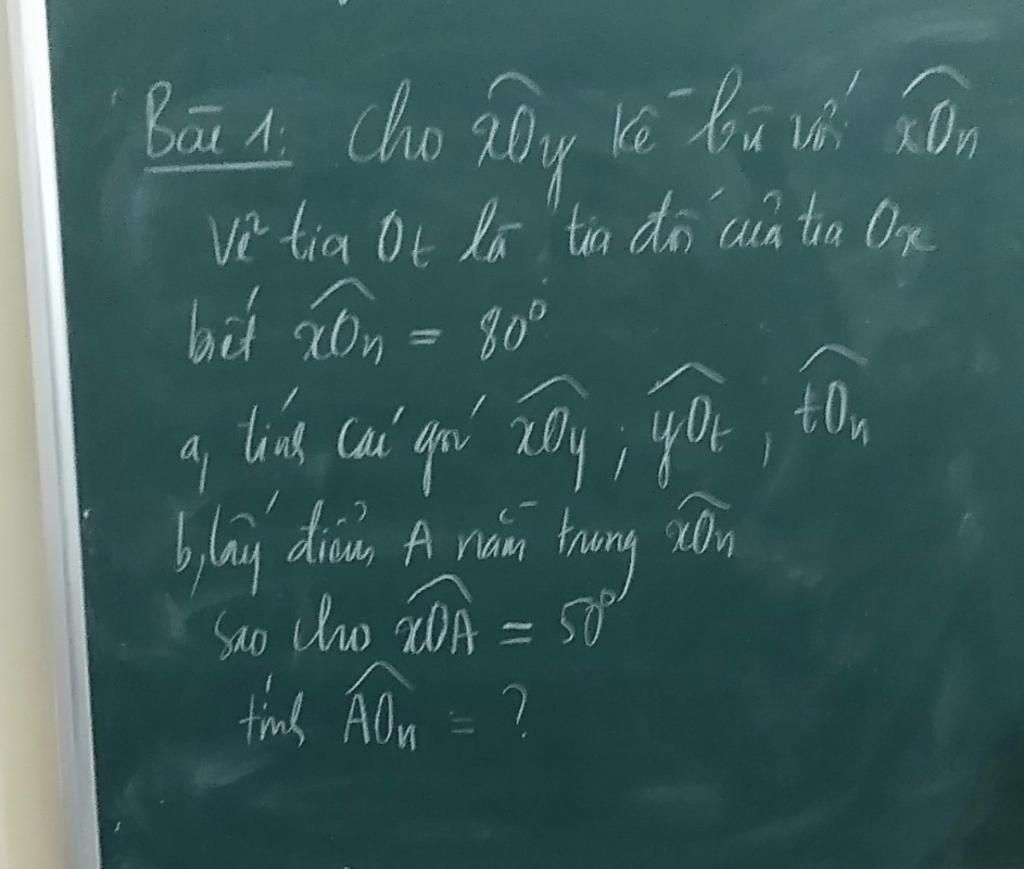 Bài 1: Cho xOy kề bù với xOn
Vẽ tia Ot là tia đối của tia Ox
biết xOn = 80°
a, tính các góc xOy ; yOt , tOn
b, lấy điểm A nằm trong xOn
sao cho xOA = 50°
tính AOn = ?